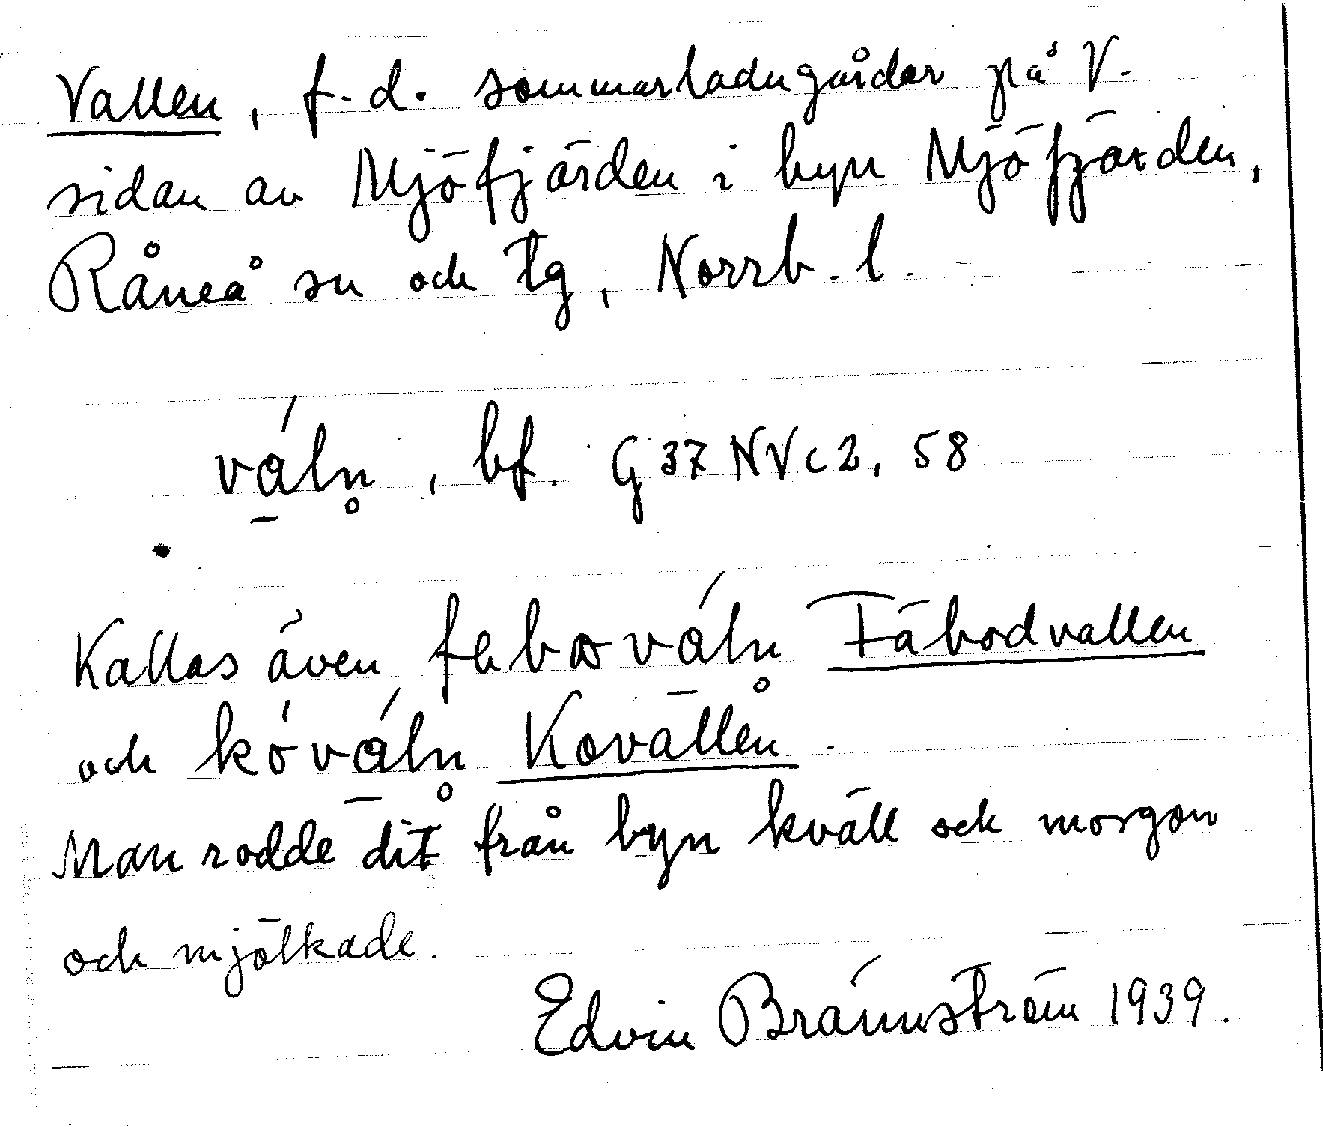 Vallen, f.d. sommarladugårdar på V.
sidan av Mjöfjärden i byn Mjöfjärden,
Råneå sn och tg, Norrb. l.
vá̱ln̥, bf. G 37 NV c 2, 58
Kallas även fäbová̱ln̥ Fäbodvallen
och kóvá̱ln̥ Kovallen.
Man rodde dit från byn kväll och morgon
och mjölkade.
Edvin Brännström 1939.